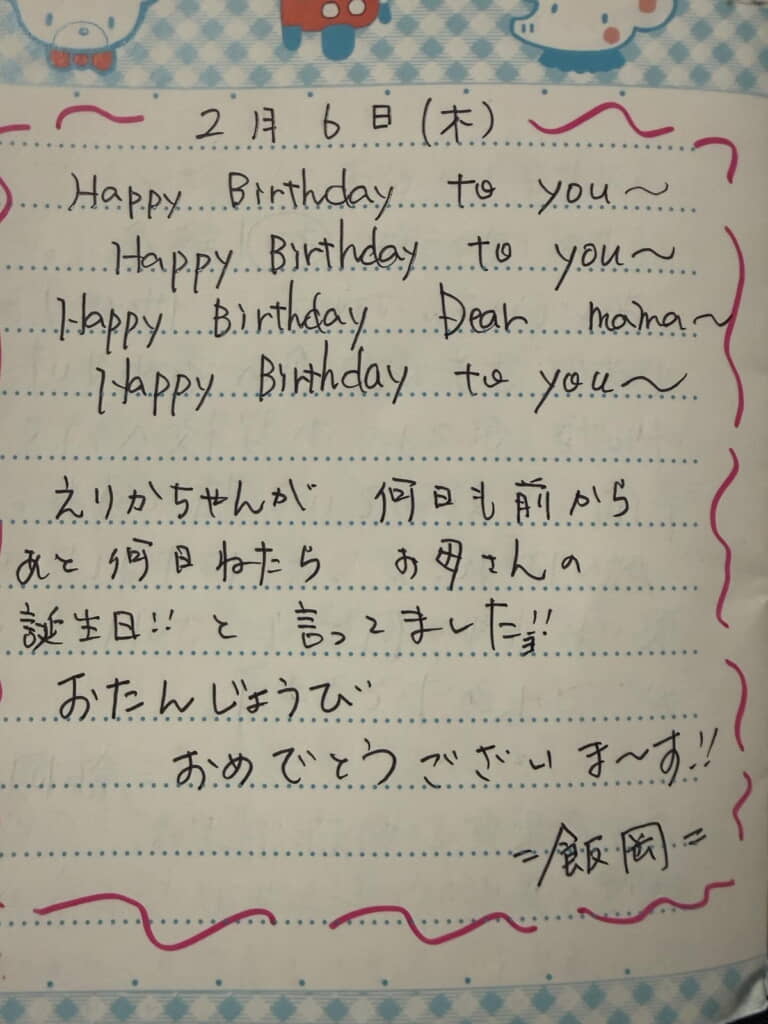 2月6日(木)
Happy Birthday to you〜
Happy Birthday to you〜
Happy Birthday Dear mama〜
Happy Birthday to you〜
えりかちゃんが 何日も前から
あと何日ねたら お母さんの
誕生日!! と 言ってました!!
おたんじょうび
おめでとうございま〜す!!
=飯岡=